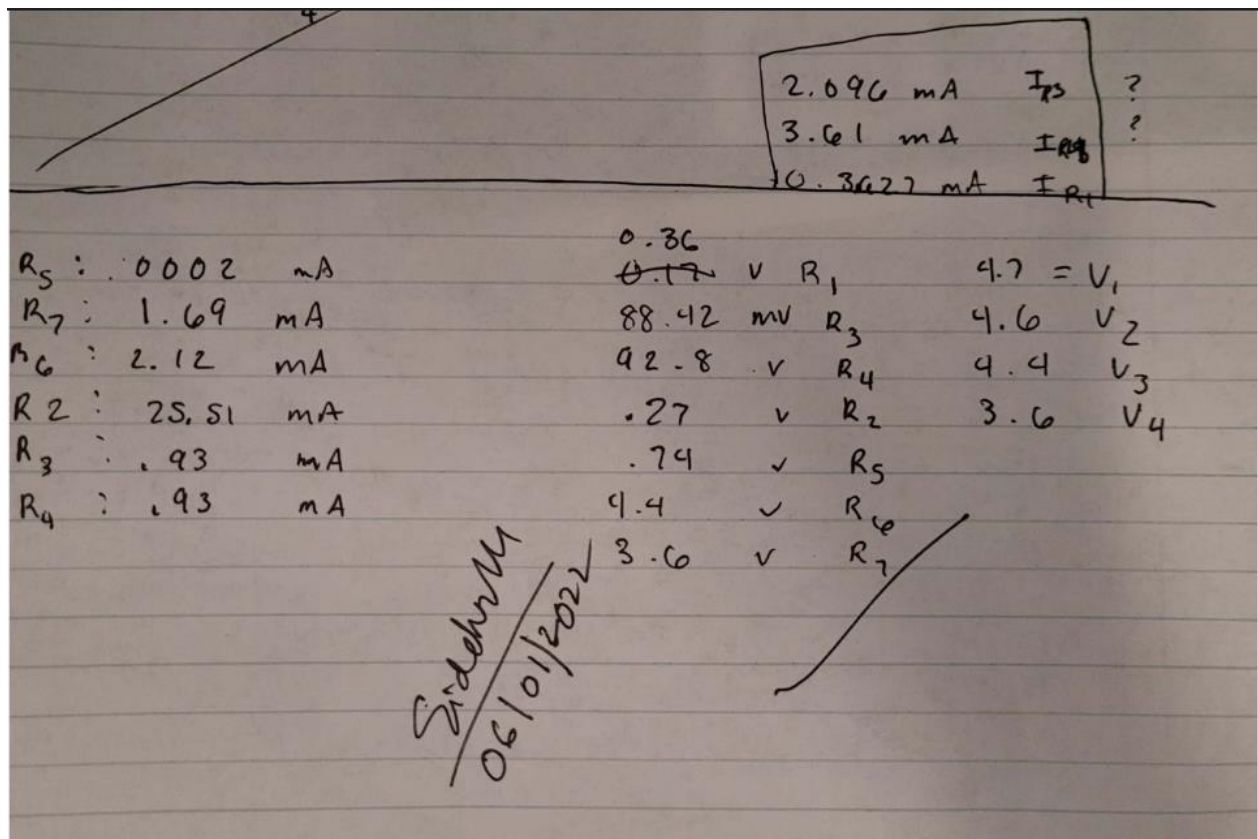 4
2.096 mA I_R3 ?
3.61 mA ?
0.3627 mA I_R1
R5 : .0002 mA
R7 : 1.69 mA
R6 : 2.12 mA
R2 : 25.51 mA
R3 : .93 mA
R4 : .93 mA
0.36
0.17 V R1
88.42 mV R3
92.8 V R4
.27 V R2
.74 V R5
4.4 V R6
3.6 V R7
4.7 = V1
4.6 V2
4.4 V3
3.6 V4
06/01/2022